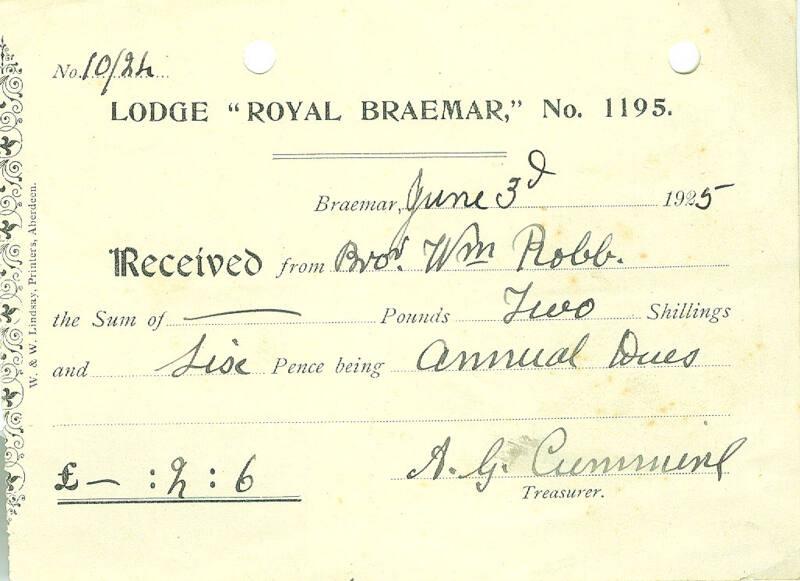 No. 10/24
LODGE "ROYAL BRAEMAR," No. 1195.
Braemar, June 3d 1925
Received from Bror. Wm Robb.
the Sum of — Pounds Two Shillings
and Six Pence being Annual Dues
£ — : 2 : 6
A. G.
Treasurer.
W. & W. Lindsay, Printers, Aberdeen.